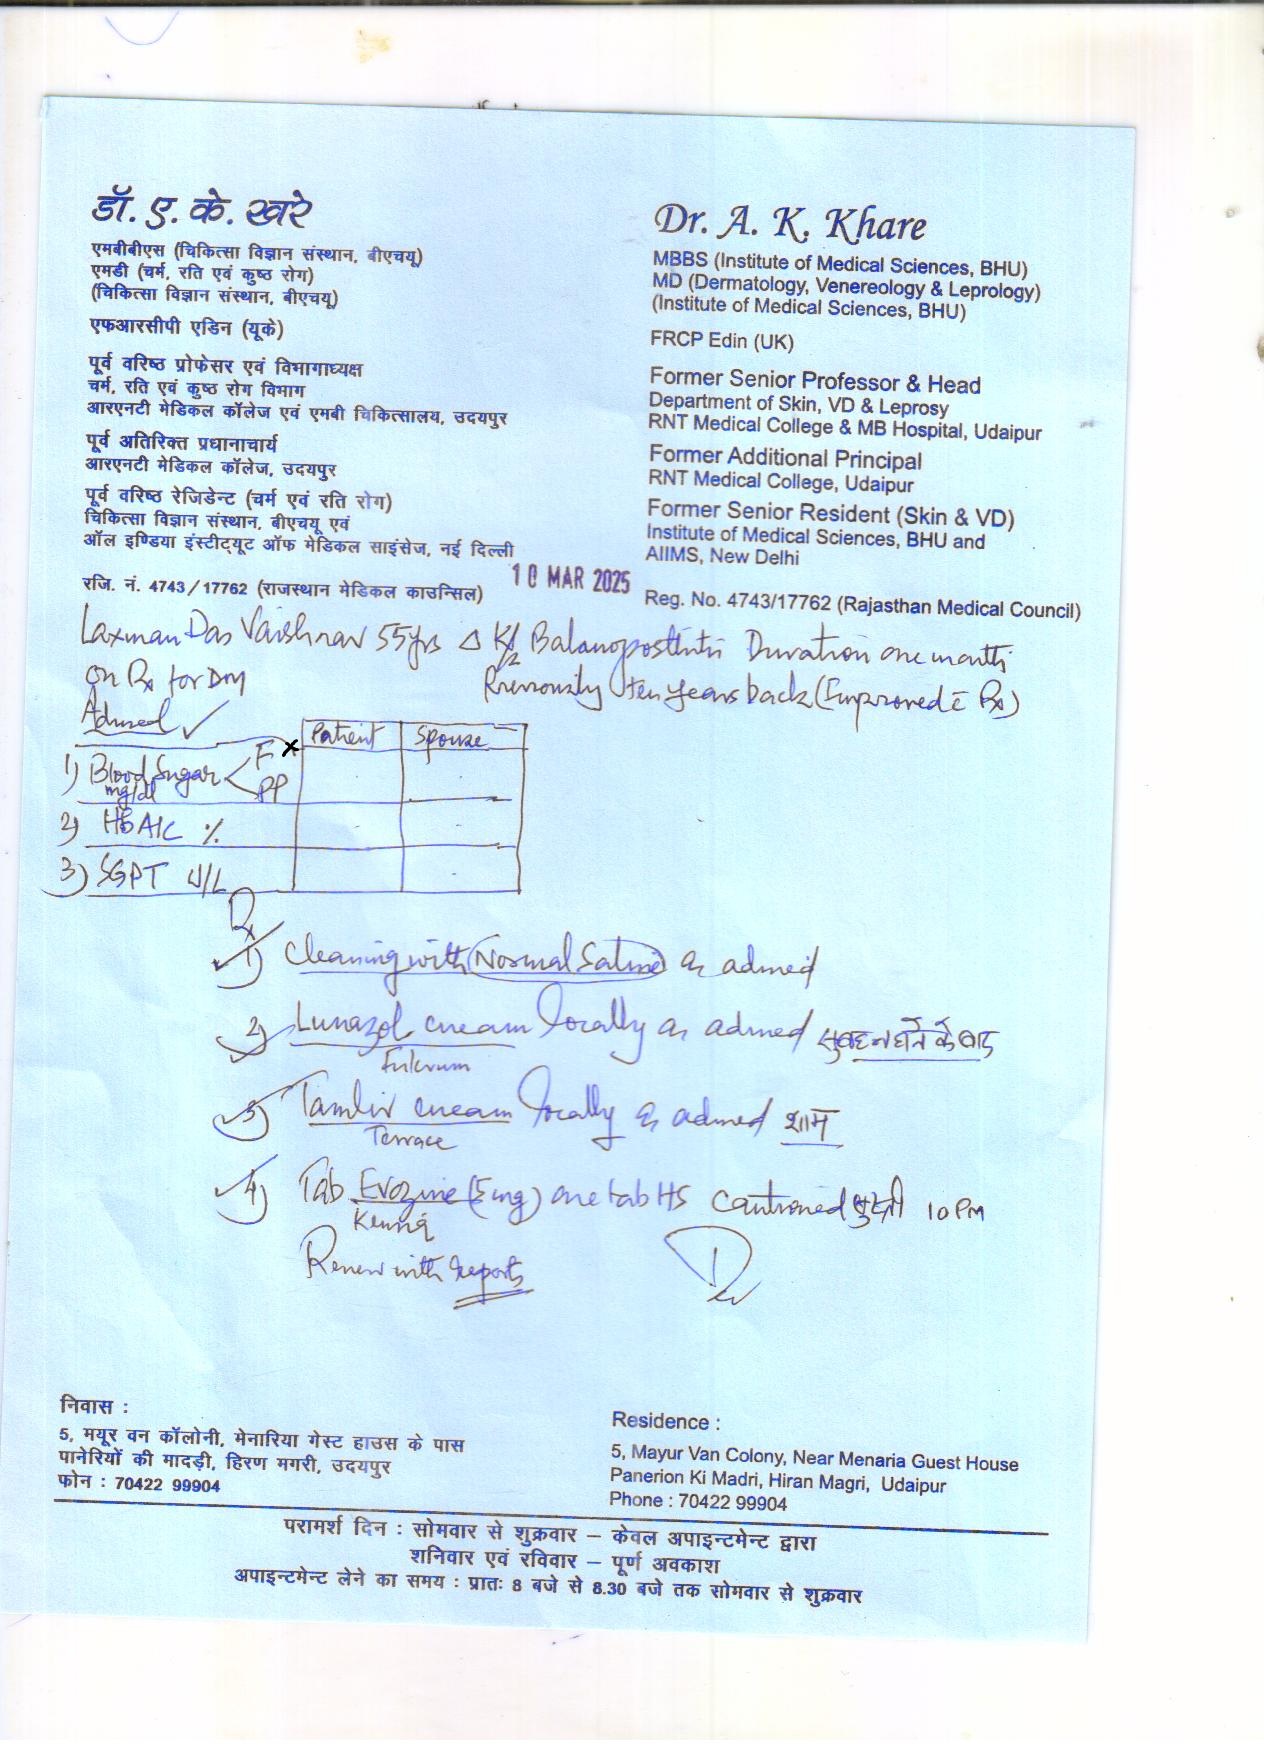 डॉ. ए. के. खरे
एमबीबीएस (चिकित्सा विज्ञान संस्थान, बीएचयू)
एमडी (चर्म, रति एवं कुष्ठ रोग)
(चिकित्सा विज्ञान संस्थान, बीएचयू)
एफआरसीपी एडिन (यूके)
पूर्व वरिष्ठ प्रोफेसर एवं विभागाध्यक्ष
चर्म, रति एवं कुष्ठ रोग विभाग
आरएनटी मेडिकल कॉलेज एवं एमबी चिकित्सालय, उदयपुर
पूर्व अतिरिक्त प्रधानाचार्य
आरएनटी मेडिकल कॉलेज, उदयपुर
पूर्व वरिष्ठ रेजिडेन्ट (चर्म एवं रति रोग)
चिकित्सा विज्ञान संस्थान, बीएचयू एवं
ऑल इण्डिया इंस्टीट्यूट ऑफ मेडिकल साइंसेज, नई दिल्ली
रजि. नं. 4743/17762 (राजस्थान मेडिकल काउन्सिल)
Dr. A. K. Khare
MBBS (Institute of Medical Sciences, BHU)
MD (Dermatology, Venereology & Leprology)
(Institute of Medical Sciences, BHU)
FRCP Edin (UK)
Former Senior Professor & Head
Department of Skin, VD & Leprosy
RNT Medical College & MB Hospital, Udaipur
Former Additional Principal
RNT Medical College, Udaipur
Former Senior Resident (Skin & VD)
Institute of Medical Sciences, BHU and
AIIMS, New Delhi
Reg. No. 4743/17762 (Rajasthan Medical Council)
10 MAR 2025
Laxman Das Vaishnav 55yrs Δ Balanoposthitis Duration one month
On Rx for DM Previously ten years back (Improved c̄ Rx)
Advised
Patient Spouse
1) Blood Sugar F
mg/dl PP
2) HbA1C %
3) SGPT U/L
Rx
1) Cleaning with Normal Saline as advised
2) Lunazol cream locally as advised सुबह नहाने के बाद
Fulcrum
3) cream locally as advised शाम
Terrace
4) Tab Evozine (5mg) one tab HS Cautioned 10 PM
Review with reports
निवास :
5, मयूर वन कॉलोनी, मेनारिया गेस्ट हाउस के पास
पानेरियों की मादड़ी, हिरण मगरी, उदयपुर
फोन : 70422 99904
Residence :
5, Mayur Van Colony, Near Menaria Guest House
Panerion Ki Madri, Hiran Magri, Udaipur
Phone : 70422 99904
परामर्श दिन : सोमवार से शुक्रवार – केवल अपाइन्टमेन्ट द्वारा
शनिवार एवं रविवार – पूर्ण अवकाश
अपाइन्टमेन्ट लेने का समय : प्रातः 8 बजे से 8.30 बजे तक सोमवार से शुक्रवार